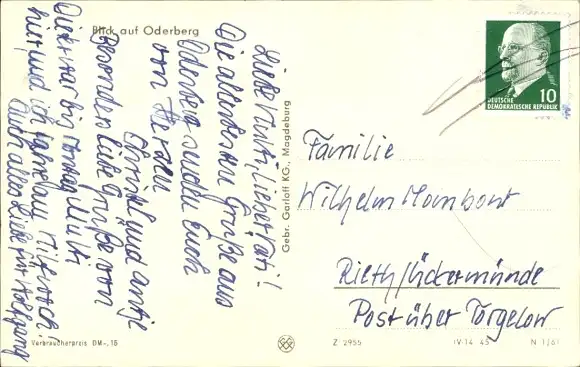 Blick auf Oderberg
Liebe Mutti, Lieber Vati!
Die allerbesten Grüße aus
Oderberg senden Euch
von Herzen
Christel und Antje
Besonders liebe Grüße von
Dieter war bis Montag Mutti
hier, und ich fahre am Mittwoch!
Auch alles Liebe für Wolfgang
Verbraucherpreis DM -,15
Gebr. Garloff KG., Magdeburg
Z 2955
IV-14 45
N 1/61
10
DEUTSCHE
DEMOKRATISCHE REPUBLIK
Familie
Wilhelm
Rieth/Ückermünde
Post über Torgelow